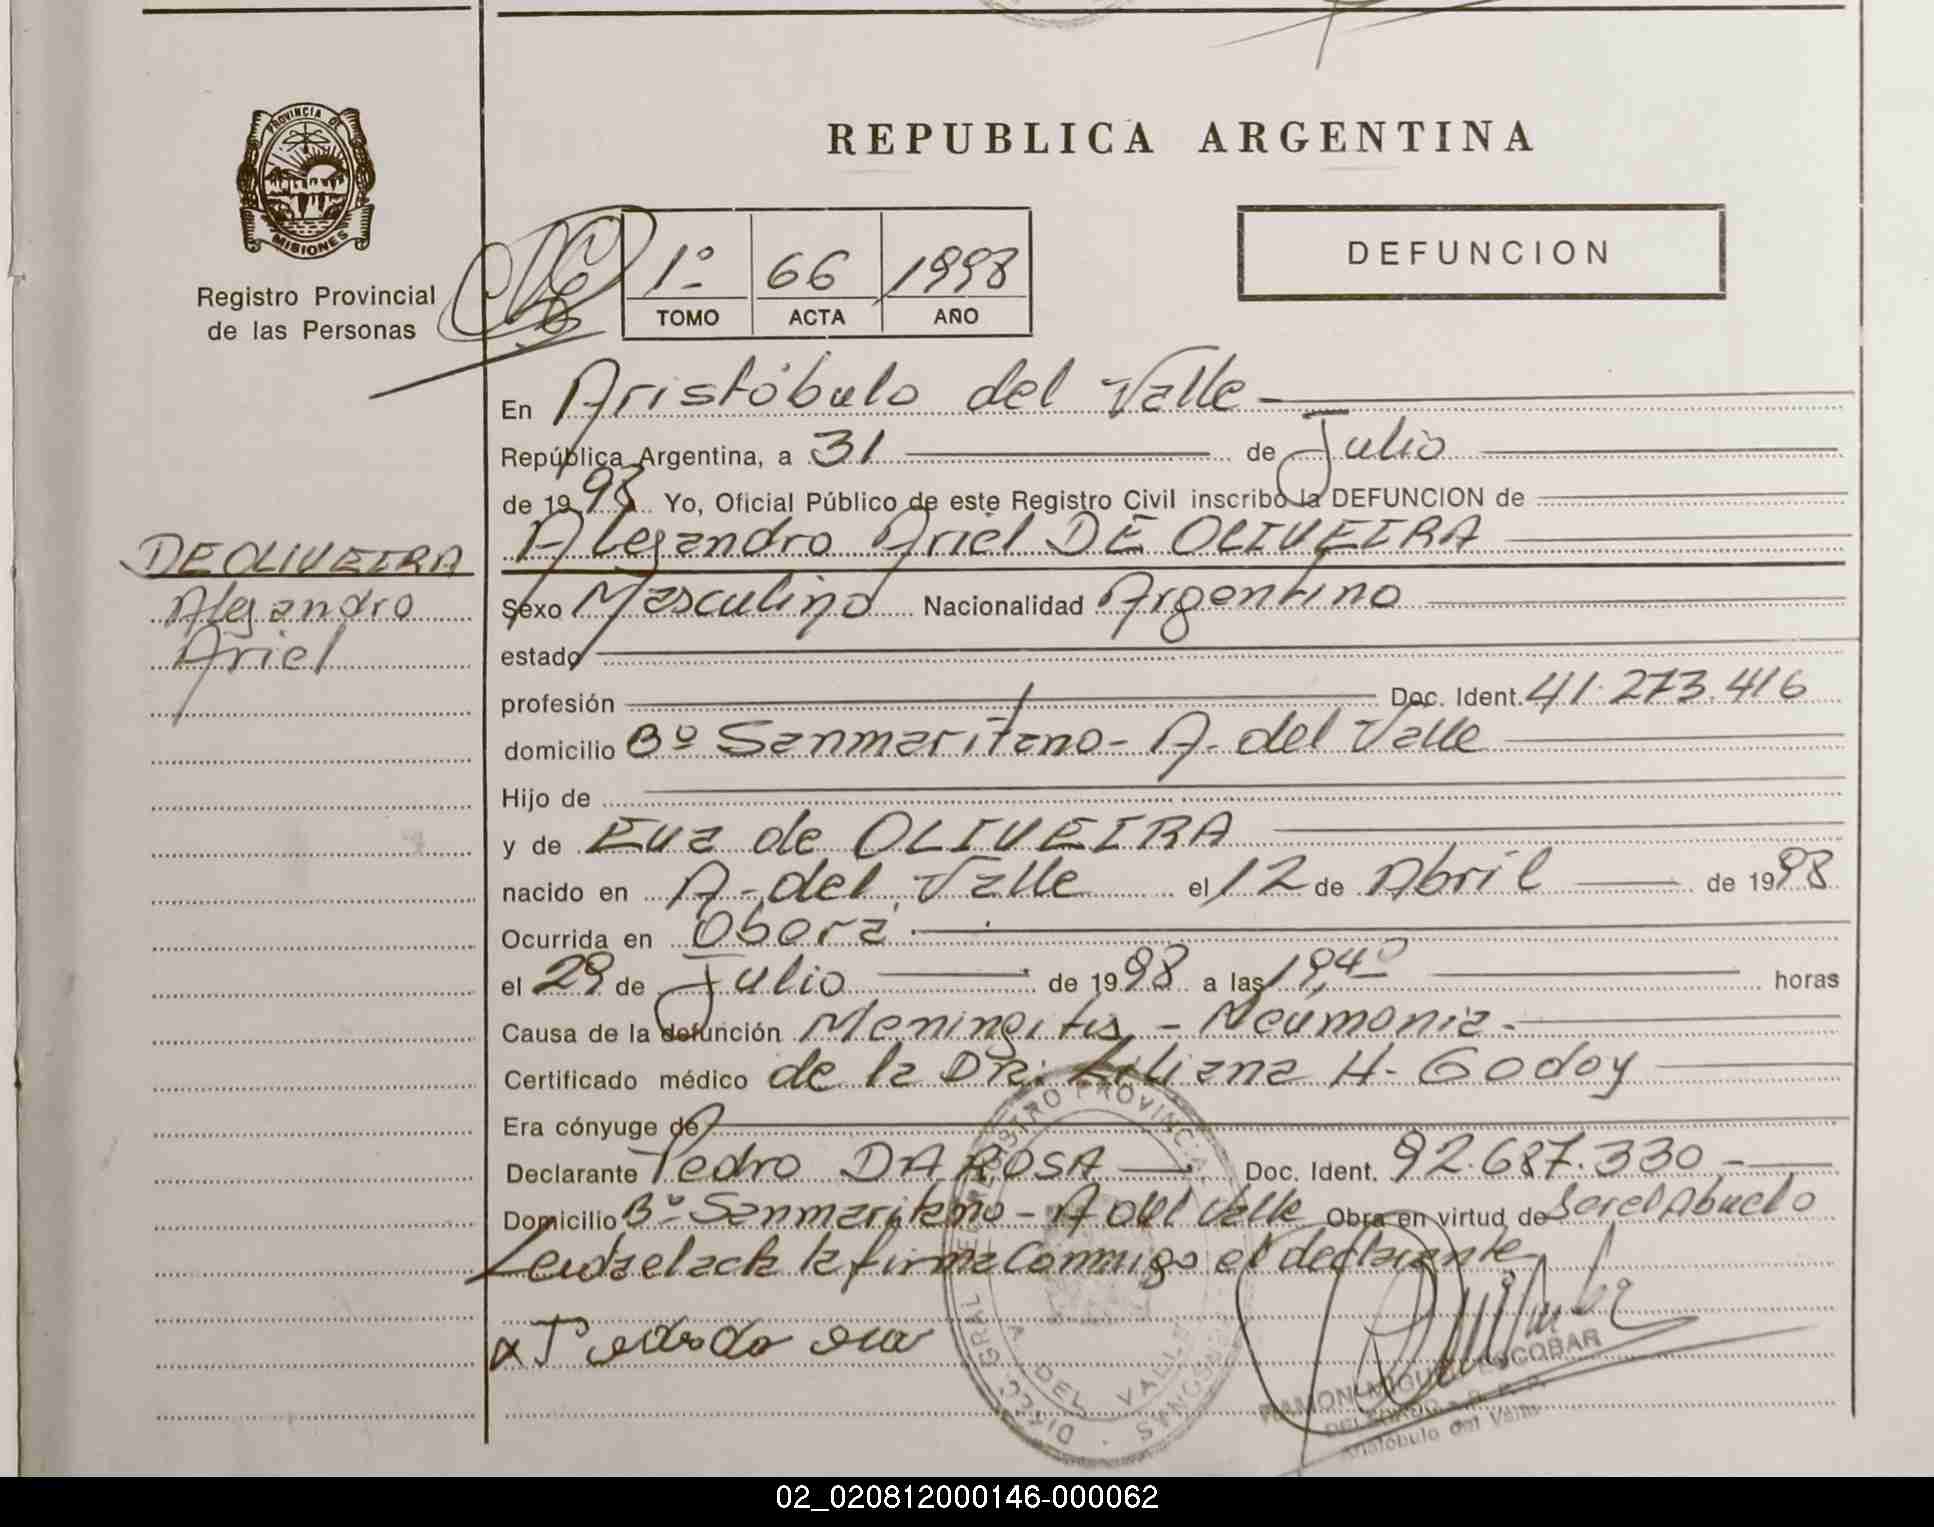 PROVINCIA DE
MISIONES
Registro Provincial
de las Personas
REPUBLICA ARGENTINA
1º 66 1998
TOMO ACTA AÑO
DEFUNCION
En Aristóbulo del Valle
República Argentina, a 31 de Julio
de 1998 Yo, Oficial Público de este Registro Civil inscribo la DEFUNCION de
Alejandro Ariel DE OLIVEIRA
DE OLIVEIRA
Alejandro
Ariel
Sexo Masculino Nacionalidad Argentino
estado
profesión Doc. Ident. 41.273.416
domicilio Bº Sanmaritano - A. del Valle
Hijo de
y de Eva de OLIVEIRA
nacido en A. del Valle el 12 de Abril de 1998
Ocurrida en Oberá
el 29 de Julio de 1998 a las 19,40 horas
Causa de la defunción Meningitis - Neumonia -
Certificado médico de la Dra. Liliana H. Godoy
Era cónyuge de
Declarante Pedro DA ROSA Doc. Ident. 92.687.330 -
Domicilio Bº Sanmaritano - A del Valle Obra en virtud de Ser el Abuelo
Leida el acta la firma Conmigo el declarante
x Pedro da
REGISTRO PROVINCIAL DE LAS PERSONAS - DIRECC. GRAL.
A. DEL VALLE
RAMON MIGUEL ESCOBAR
DELEGADO R. P. P.
Aristóbulo del Valle
02_020812000146-000062